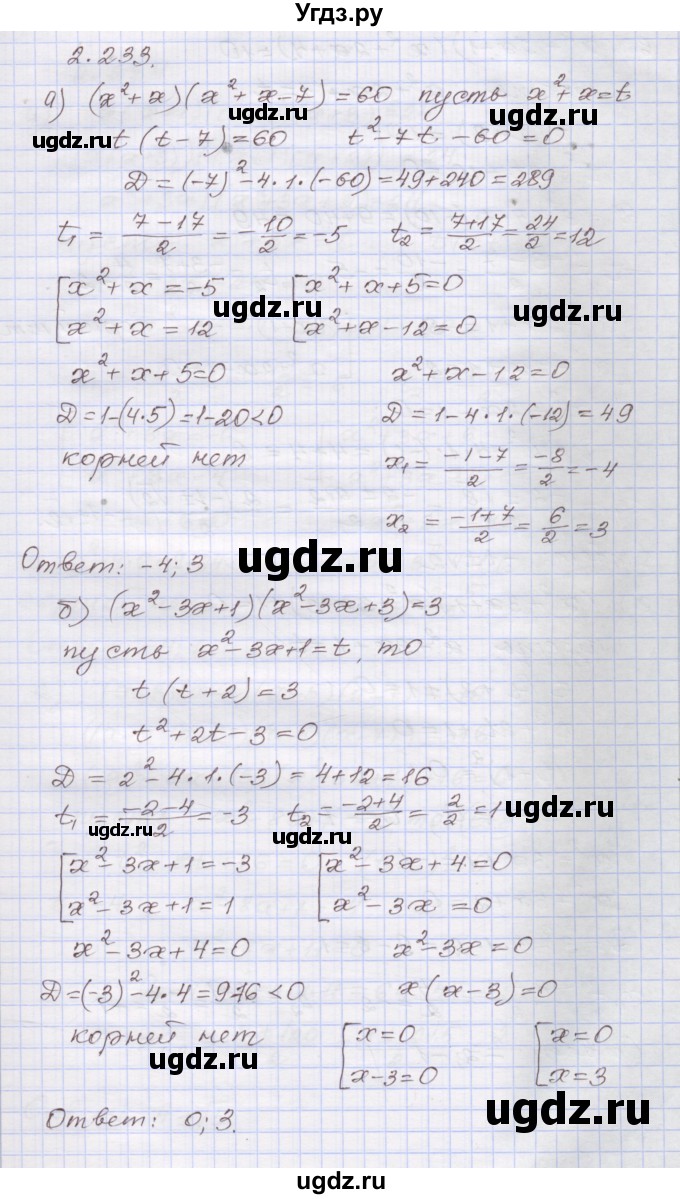 Угдз.ру
2.233.
а) (x²+x)(x²+x-7)=60 пусть x²+x=t
ugdz.ru t(t-7)=60 t²-7t-60=0
D=(-7)²-4·1·(-60)=49+240=289
t₁ = (7-17)/2 = -10/2 = -5 t₂ = (7+17)/2 = 24/2 = 12
[x²+x=-5 [x²+x+5=0
ugdz.ru ugdz.ru
x²+x=12 x²+x-12=0
x²+x+5=0 x²+x-12=0
D=1-(4·5)=1-20<0 D=1-4·1·(-12)=49
корней нет x₁ = (-1-7)/2 = -8/2 = -4
x₂ = (-1+7)/2 = 6/2 = 3
Ответ: -4; 3 ugdz.ru
б) (x²-3x+1)(x²-3x+3)=3
пусть x²-3x+1=t, то
t(t+2)=3
t²+2t-3=0
D=2²-4·1·(-3)=4+12=16
t₁ = (-2-4)/2 = -3 t₂ = (-2+4)/2 = 2/2 = 1
ugdz.ru ugdz.ru ugdz.ru
[x²-3x+1=-3 [x²-3x+4=0
x²-3x+1=1 x²-3x=0
x²-3x+4=0 x²-3x=0
D=(-3)²-4·4=9-16<0 x(x-3)=0
корней нет [x=0 [x=0
ugdz.ru x-3=0 x=3
ugdz.ru
Ответ: 0; 3.
ugdz.ru